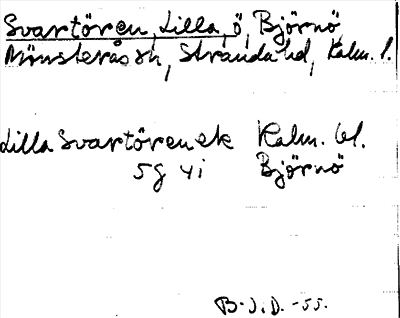 Svartören, Lilla, ö, Björnö,
Mönsterås sn, Stranda hd, Kalm. l.
Lilla Svartören ek Kalm. bl.
5g 4i Björnö
B.J.D. -55.